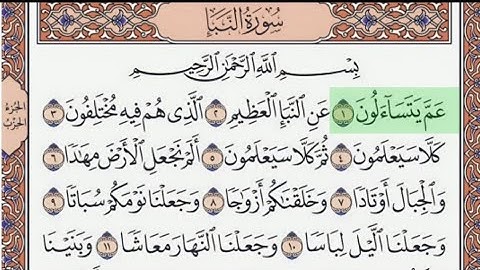 سُورَةُ النَّبَإِ
بِسْمِ اللَّهِ الرَّحْمَٰنِ الرَّحِيمِ
عَمَّ يَتَسَآءَلُونَ ١ عَنِ النَّبَإِ الْعَظِيمِ ٢ الَّذِى هُمْ فِيهِ مُخْتَلِفُونَ ٣
كَلَّا سَيَعْلَمُونَ ٤ ثُمَّ كَلَّا سَيَعْلَمُونَ ٥ أَلَمْ نَجْعَلِ الْأَرْضَ مِهَٰدًا ٦
وَالْجِبَالَ أَوْتَادًا ٧ وَخَلَقْنَٰكُمْ أَزْوَٰجًا ٨ وَجَعَلْنَا نَوْمَكُمْ سُبَاتًا ٩
وَجَعَلْنَا الَّيْلَ لِبَاسًا ١٠ وَجَعَلْنَا النَّهَارَ مَعَاشًا ١١ وَبَنَيْنَا
الجزء
الحزب